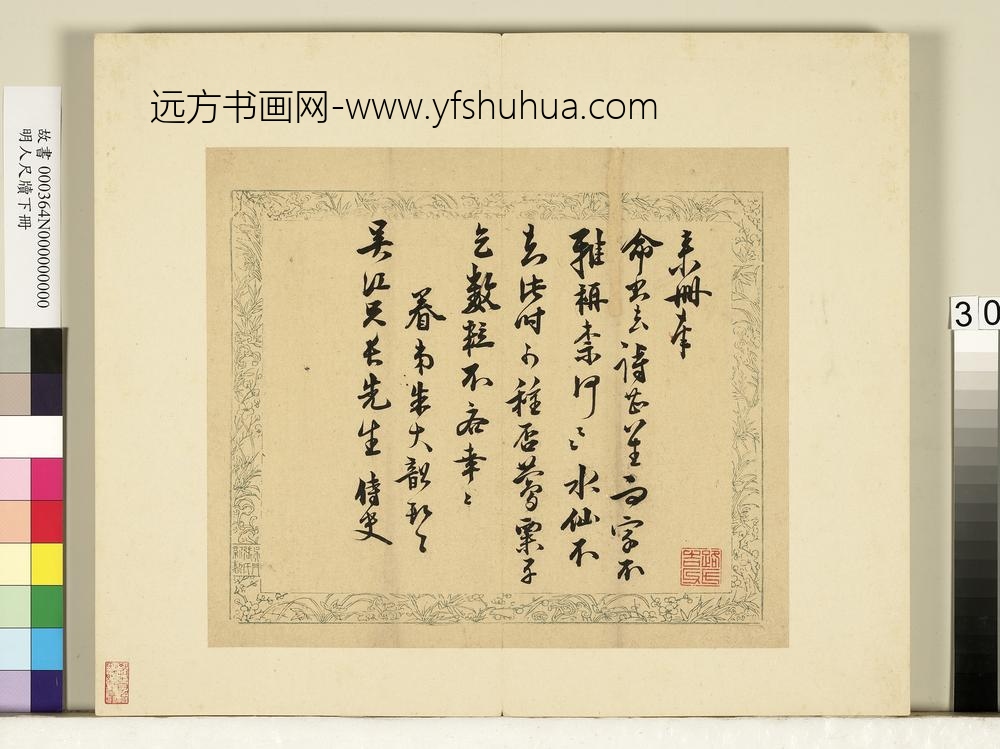 远方书画网-www.yfshuhua.com
故書 000364N000000000
明人尺牘下冊
30
来冊奉
命書去詩甚
字不
雅稱柰何〻水仙不
去此時可種否罌粟子
乞數粒不吝幸〻
眷弟朱大韶頓〻
吳江兄長先生 侍史